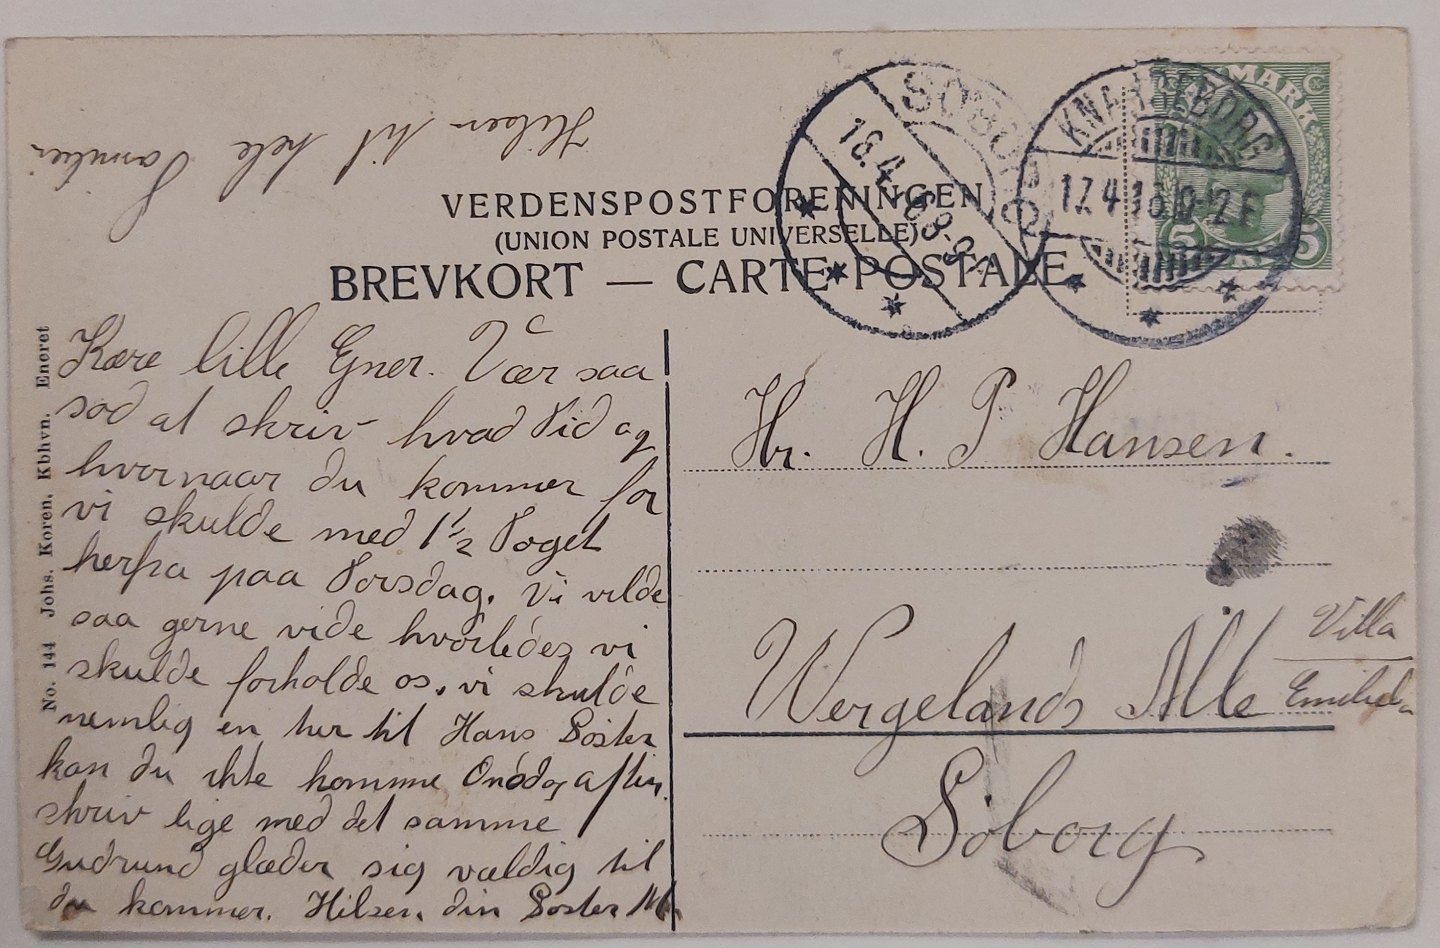 Hilsen til hele Familien
VERDENSPOSTFORENINGEN
(UNION POSTALE UNIVERSELLE)
BREVKORT — CARTE POSTALE
SØBORG
18.4. 8-9
KNABSTRUP
17.4.16 10-12 F
DANMARK
5 5
No. 144 Johs. Koren. Kbhvn. Eneret
Kære lille Egner. Vær saa
sød at skriv hvad Tid og
hvornaar du kommer for
vi skulde med 1½ Toget
herfra paa Torsdag. Vi vilde
saa gerne vide hvorledes vi
skulde forholde os. vi skulde
nemlig en tur til Hans Søster
kan du ikke komme Onsdag aften.
skriv lige med det samme
Gudrund glæder sig vældig til
du kommer. Hilsen din Søster M.
Hr. H. P Hansen.
Wergelands Alle
Villa
Emilieba
Söborg